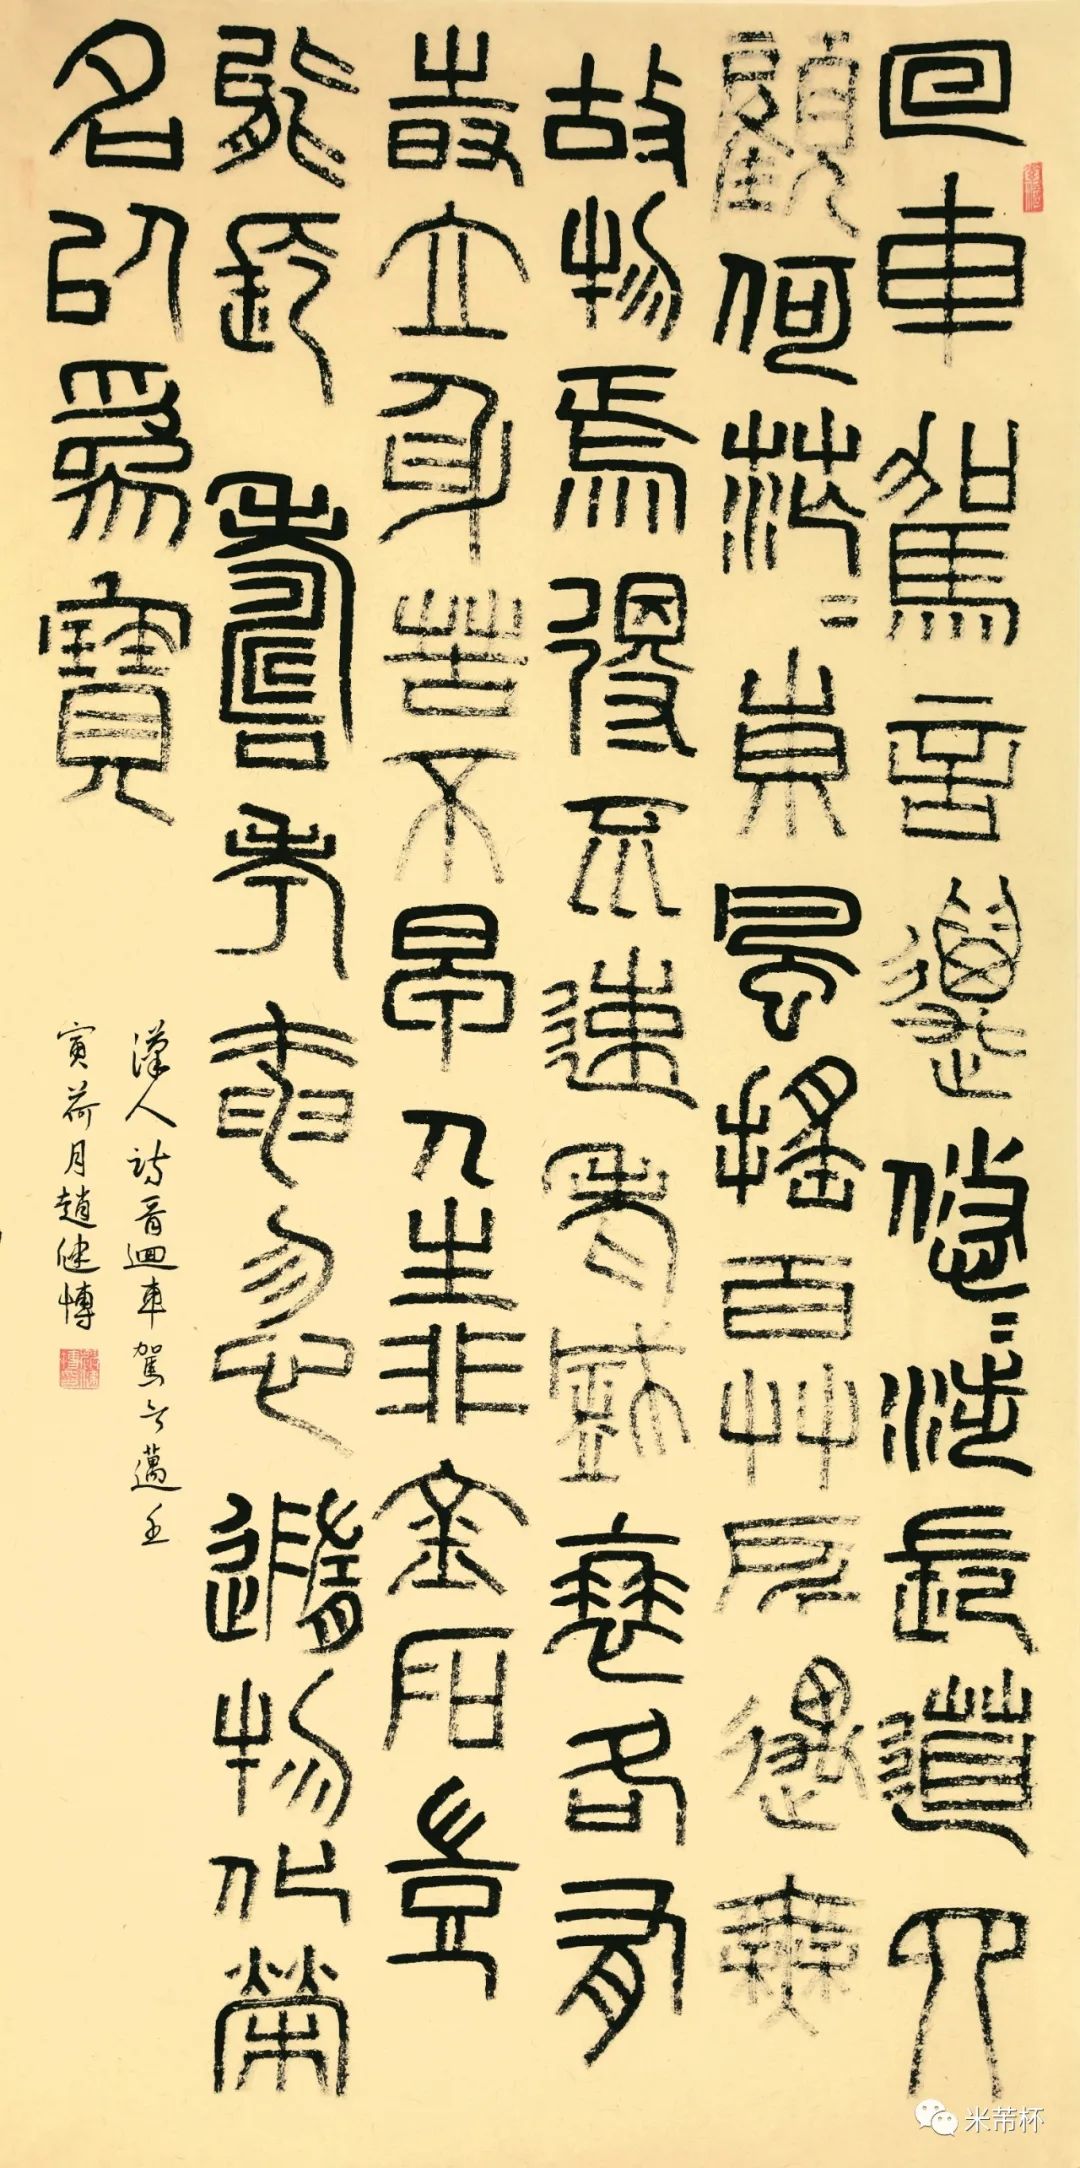 回車駕言邁悠〻涉長道四
顧何茫〻東風搖百艸所遇無
故物焉得不速老盛衰各有
時立身苦不早人生非金石豈
能長壽考奄忽隨物化榮
名以爲寶
漢人詩首迴車駕言邁壬
寅荷月趙健愽
米芾杯